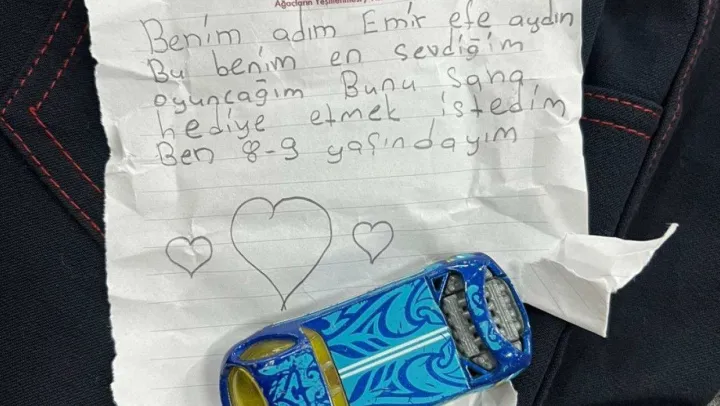 Ağaçların Yeşillenmesi
Benim adım Emir efe aydın
Bu benim en sevdiğim
oyuncağım Bunu Sana
hediye etmek istedim
Ben 8-9 yaşındayım